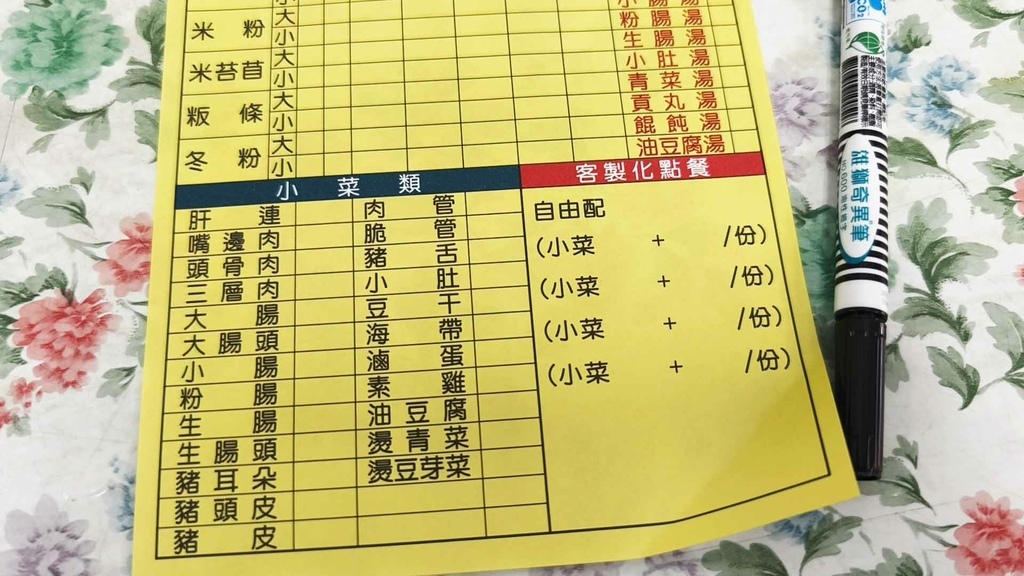 小腸湯
大
粉腸湯
米粉 小
生腸湯
大
小肚湯
米苔苜 小
青菜湯
大
貢丸湯
粄條 小
餛飩湯
大
油豆腐湯
冬粉 小
小菜類
客製化點餐
肝連 肉管
嘴邊肉 脆管
頭骨肉 豬舌
三層肉 小肚
大腸 豆干
大腸頭 海帶
小腸 滷蛋
粉腸 素雞
生腸 油豆腐
生腸頭 燙青菜
豬耳朵 燙豆芽菜
豬頭皮
豬皮
自由配
(小菜 + /份)
(小菜 + /份)
(小菜 + /份)
(小菜 + /份)
斑馬奇異筆